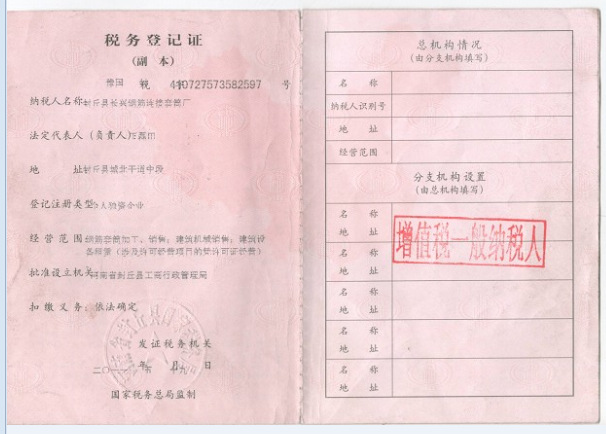 税务登记证
(副 本)
豫国 税 字 410727573582597 号
纳税人名称 封丘县长兴钢筋连接套筒厂
法定代表人(负责人)
地 址 封丘县城北干道中段
登记注册类型 个人独资企业
经营范围 钢筋套筒加工、销售；建筑机械销售；建筑设
备租赁（涉及许可经营项目的凭许可证经营）
批准设立机关 河南省封丘县工商行政管理局
扣缴义务：依法确定
发证税务机关
二〇 年 月 日
国家税务总局监制
总机构情况
(由分支机构填写)
名 称
纳税人识别号
地 址
经营范围
分支机构设置
(由总机构填写)
名 称
地 址
增值税一般纳税人
名 称
地 址
名 称
地 址
名 称
地 址
名 称
地 址